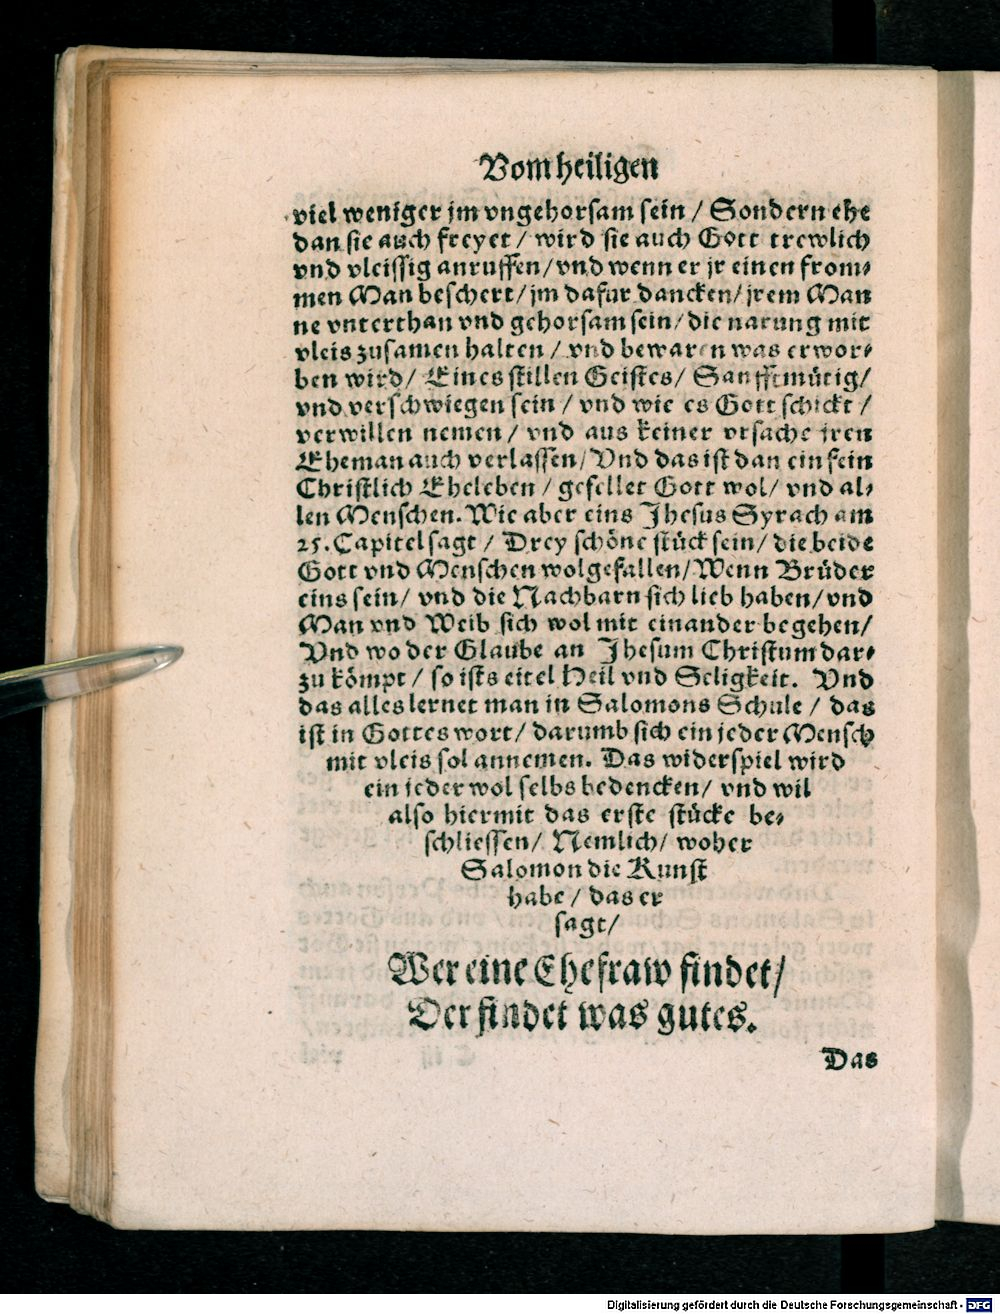 Vom heiligen
viel weniger jm vngehorsam sein / Sondern ehe
dan sie auch freyet / wird sie auch Gott trewlich
vnd vleissig anruffen / vnd wenn er jr einen from⸗
men Man beschert / jm dafur dancken / jrem Man
ne vnterthan vnd gehorsam sein / die narung mit
vleis zusamen halten / vnd bewaren was erwor⸗
ben wird / Eines stillen Geistes / Sanfftmütig /
vnd verschwiegen sein / vnd wie es Gott schickt /
verwillen nemen / vnd aus keiner vrsache jren
Eheman auch verlassen / Vnd das ist dan ein fein
Christlich Eheleben / gefellet Gott wol / vnd al⸗
len Menschen. Wie aber eins Jhesus Syrach am
25. Capitel sagt / Drey schöne stück sein / die beide
Gott vnd Menschen wolgefallen / Wenn Brüder
eins sein / vnd die Nachbarn sich lieb haben / vnd
Man vnd Weib sich wol mit einander begehen /
Vnd wo der Glaube an Jhesum Christum dar⸗
zu kömpt / so ists eitel Heil vnd Seligkeit. Vnd
das alles lernet man in Salomons Schule / das
ist in Gottes wort / darumb sich ein jeder Mensch
mit vleis sol annemen. Das widerspiel wird
ein jeder wol selbs bedencken / vnd wil
also hiermit das erste stücke be⸗
schliessen / Nemlich / woher
Salomon die Kunst
habe / das er
sagt /
Wer eine Ehefraw findet /
Der findet was gutes.
Das
Digitalisierung gefördert durch die Deutsche Forschungsgemeinschaft - DFG